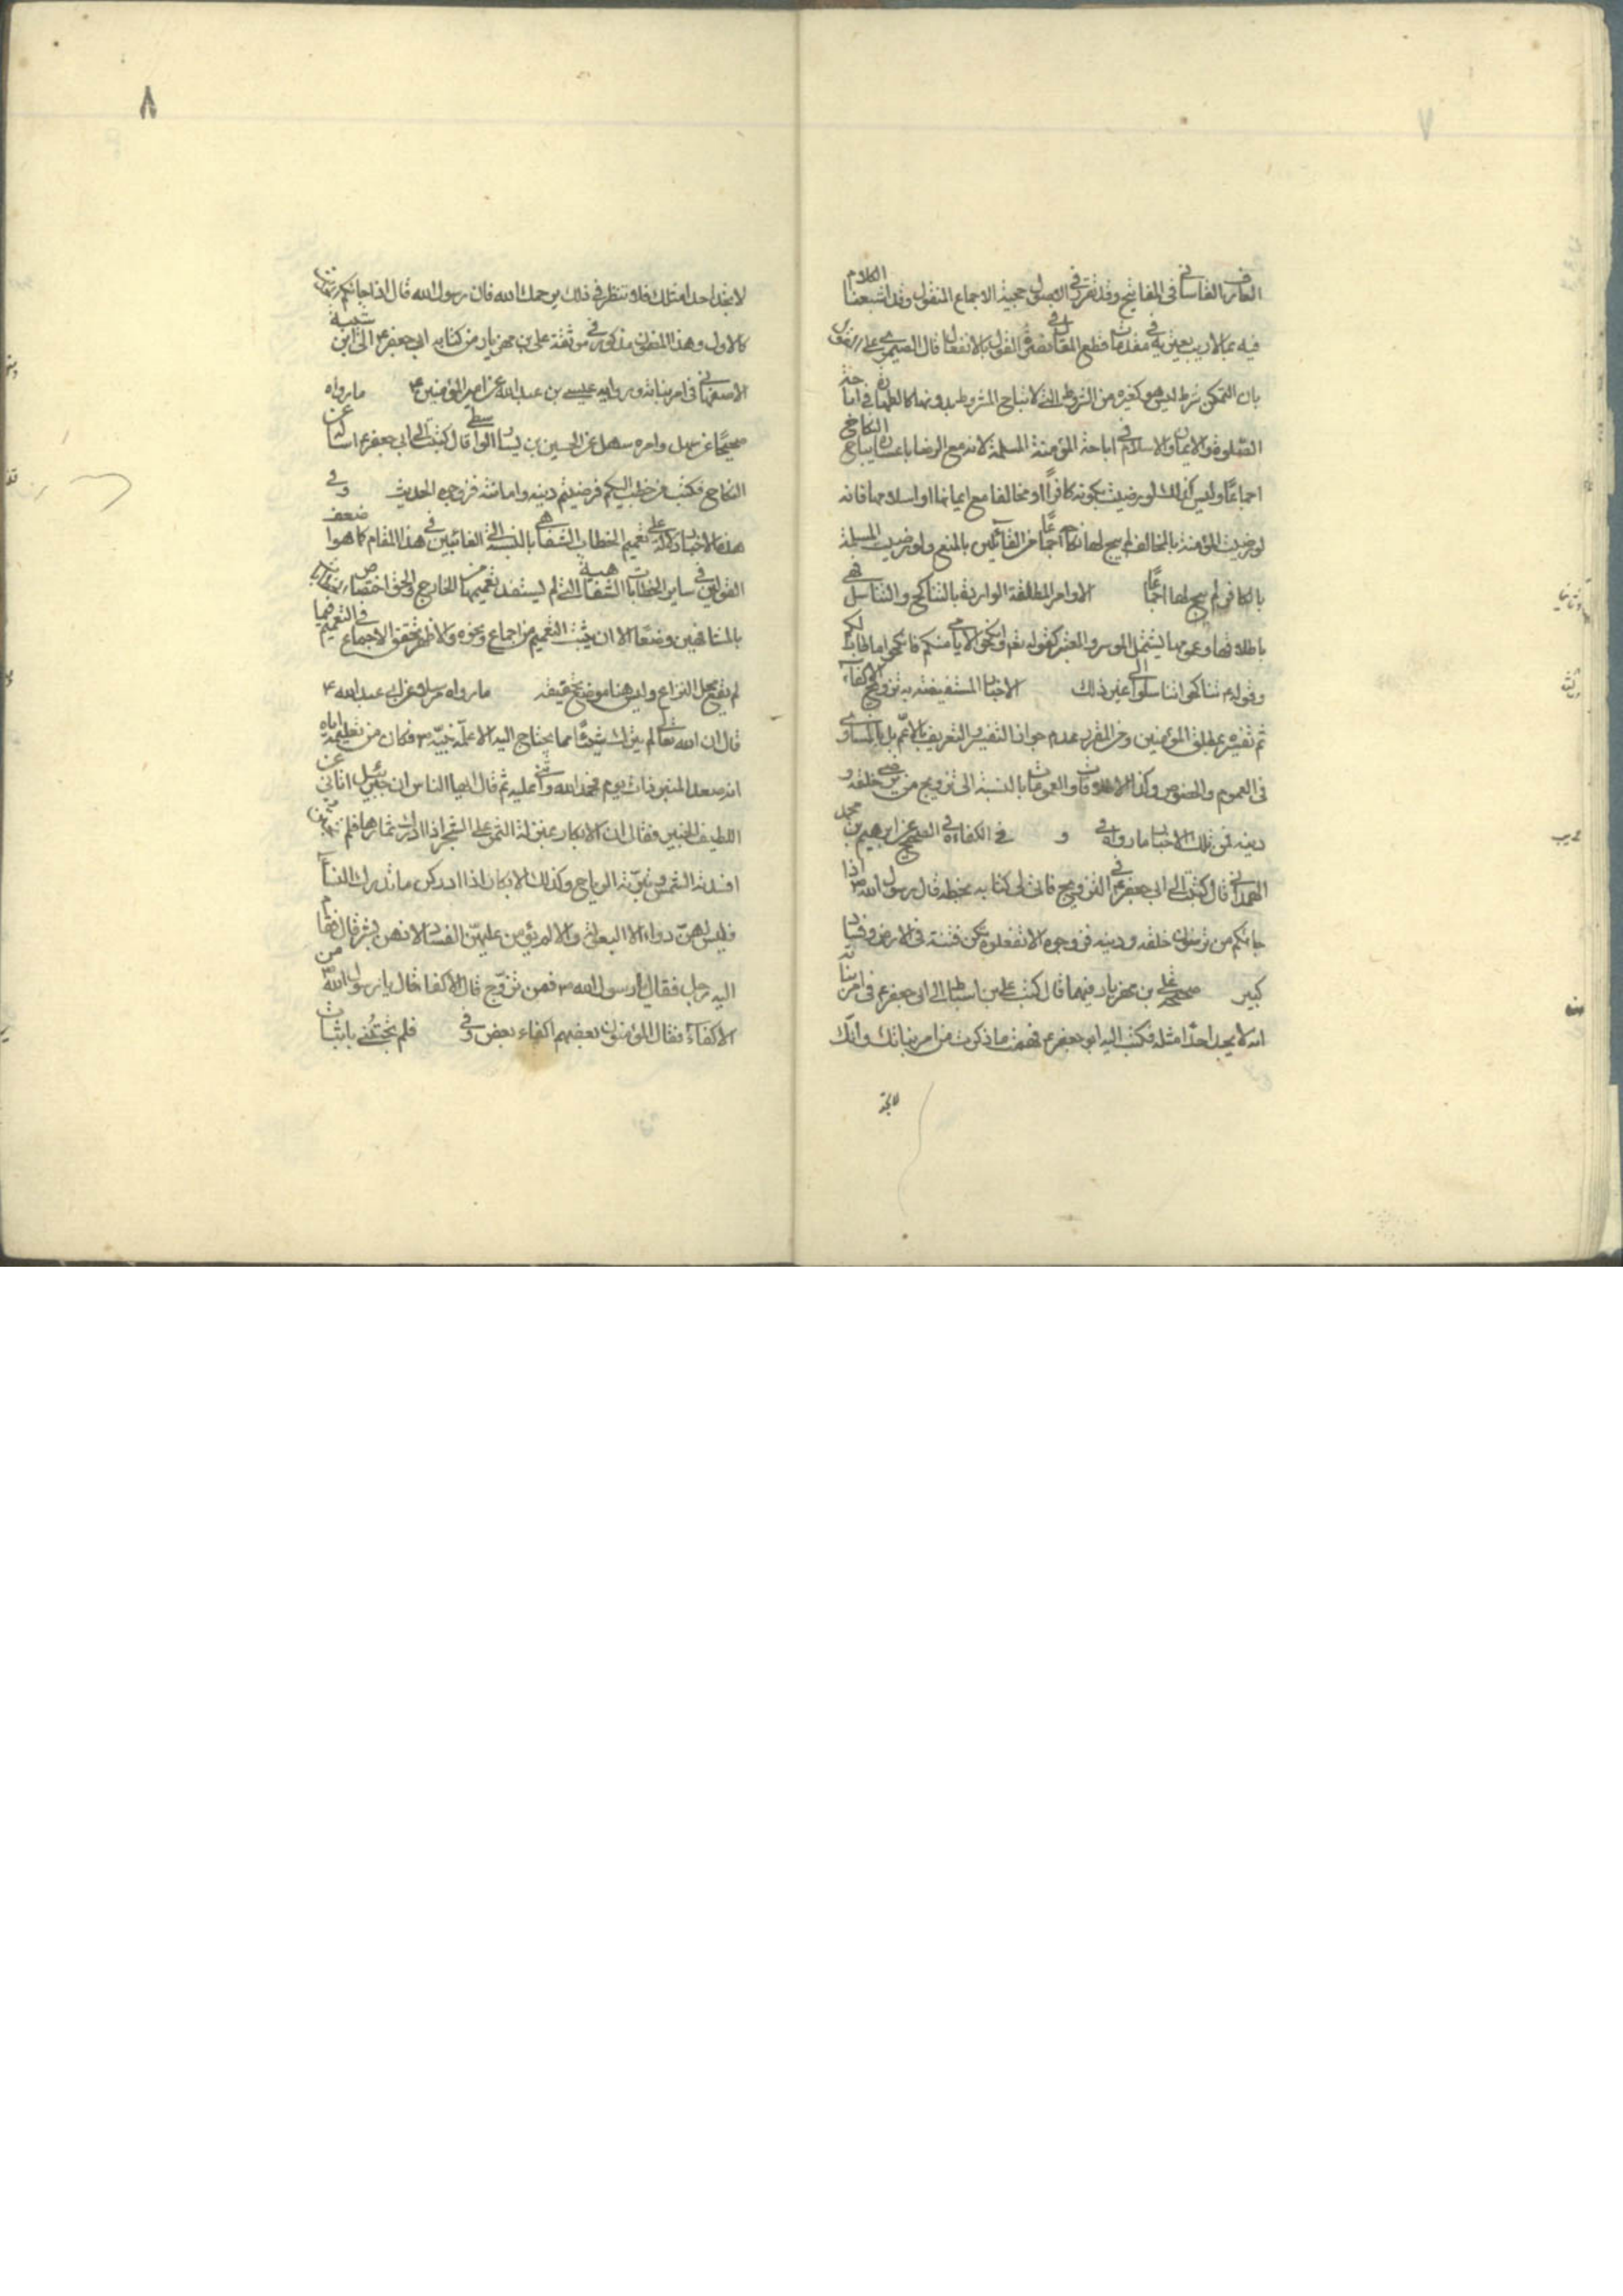 ٧
العارف القاساني في المفاتيح وقد تقرر في الاصول حجية الاجماع المنقول وقد اشبعنا الكلام
فيه بما لا ريب يعتريه في مقدمات قطع المقال في القول بالانفعال قال الصيمري على
بان التمكن شرط ليس هو كغيره من الشروط التي لا تباح المشروط بدونها كالطهارة في اباحة
الصلوة والايمان والاسلام في اباحة المؤمنة المسلمة لانه مع الرضا باعساره يباح النكاح
اجماعًا وليس كذلك لو رضيت بكونه كافرًا او مخالفا مع ايمانها او اسلامها فانه
لو رضيت المؤمنة بالمخالف لم يبح لها نكاحه اجماعًا من القائلين بالمنع ولو رضيت المسلمة
بالكافر لم يبح لها اجماعًا الاوامر المطلقة الواردة بالتناكح والتناسل فهي
باطلاقها وعمومها يشمل الموسر والمعسر كقوله تعم وانكحوا الايامى منكم فانكحوا ما طاب لكم
وقوله ع تناكحوا تناسلوا الى غير ذلك الاخبار المستفيضة بتزويج الاكفاء
ثم تفسيره بمطلق المؤمنين ومن المقرر عدم جواز التفسير والتعريف بالاعم بل بالمساوي
في العموم والخصوص وكذا الاطلاقات والعمومات بالنسبة الى تزويج من يرضى خلقه و
دينه فمن تلك الاخبار ما رواه في و في الكفاءة في الصحيح عن ابرهيم بن محمد
الهمداني قال كتبت الى ابي جعفر ع في التزويج فاتاني كتابه بخطه قال رسول الله ص اذا
جائكم من ترضون خلقه ودينه فزوجوه الا تفعلوه تكن فتنة في الارض وفساد
كبير صحيحة علي بن مهزيار فيهما قال كتب علي بن اسباط الى ابي جعفر ع في امر بناته
انه لا يجد احدًا مثله فكتب اليه ابو جعفر ع فهمت ما ذكرت من امر بناتك وانك
لا تجد
٨
لا تجد احدا مثلك فلا تنظر في ذلك يرحمك الله فان رسول الله قال اذا جائكم
كالاول وهذا المضمون مذكور في موثقة علي بن مهزيار من كتابه ابي جعفر ع الى ابن شيبة
الاصفهاني في امر بناته ورواية عيسى بن عبد الله عن امير المؤمنين ع ما رواه
صحيحًا عن سهل وامره سهل عن الحسين بن بشار الواسطي قال كتبت الى ابي جعفر ع اساله عن
النكاح فكتب من خطب اليكم فرضيتم دينه وامانته فزوجوه الحديث وفي
هذه الاخبار دلالة على تعميم الخطاب الشفاهي بالنسبة الى الغائبين في هذا المقام كما هو
القوي في ساير الخطابات الشفاهية التي لم يستفد تعميمها من الخارج والحق اختصاص
بالمشافهين وضعًا الا ان يثبت التعميم من اجماع ونحوه والاظهر تحقق الاجماع في التعميم فيما
لم يقع محل النزاع وليس هنا موضع تحقيقه ما رواه مرسلا عن ابي عبد الله ع
قال ان الله تعالى لم يترك شيئًا مما يحتاج اليه الا علمه نبيه ص فكان من تعليمه اياه
انه صعد المنبر ذات يوم فحمد الله واثنى عليه ثم قال ايها الناس ان جبرئيل اتاني عن
اللطيف الخبير فقال ان الابكار بمنزلة الثمر على الشجر اذا ادرك ثمارها فلم تجتن
افسدته الشمس ونثرته الرياح وكذلك الابكار اذا ادركن ما تدرك النساء
فليس لهن دواء الا البعولة والا لم يؤمن عليهن الفساد لانهن بشر قال فقام
اليه رجل فقال يا رسول الله ص فمن تزوج قال الاكفاء قال يا رسول الله ص من
الاكفاء فقال المؤمنون بعضهم اكفاء بعض وفي فلم يجتنى باثبات